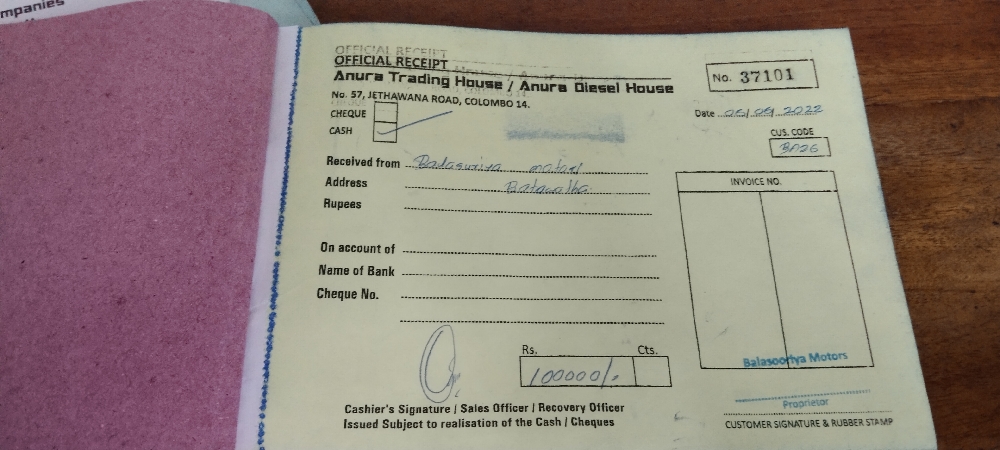 mpanies
OFFICIAL RECEIPT
OFFICIAL RECEIPT
Anura Trading House / Anura Diesel House
No. 57, JETHAWANA ROAD, COLOMBO 14.
No. 37101
Date 05/09/2022
CHEQUE
CASH
CUS. CODE
BA26
Received from Balasuriya motors
Address Batawalha
Rupees
INVOICE NO.
On account of
Name of Bank
Cheque No.
Rs. Cts.
100000/-
Balasooriya Motors
Proprietor
Cashier's Signature / Sales Officer / Recovery Officer
Issued Subject to realisation of the Cash / Cheques
CUSTOMER SIGNATURE & RUBBER STAMP